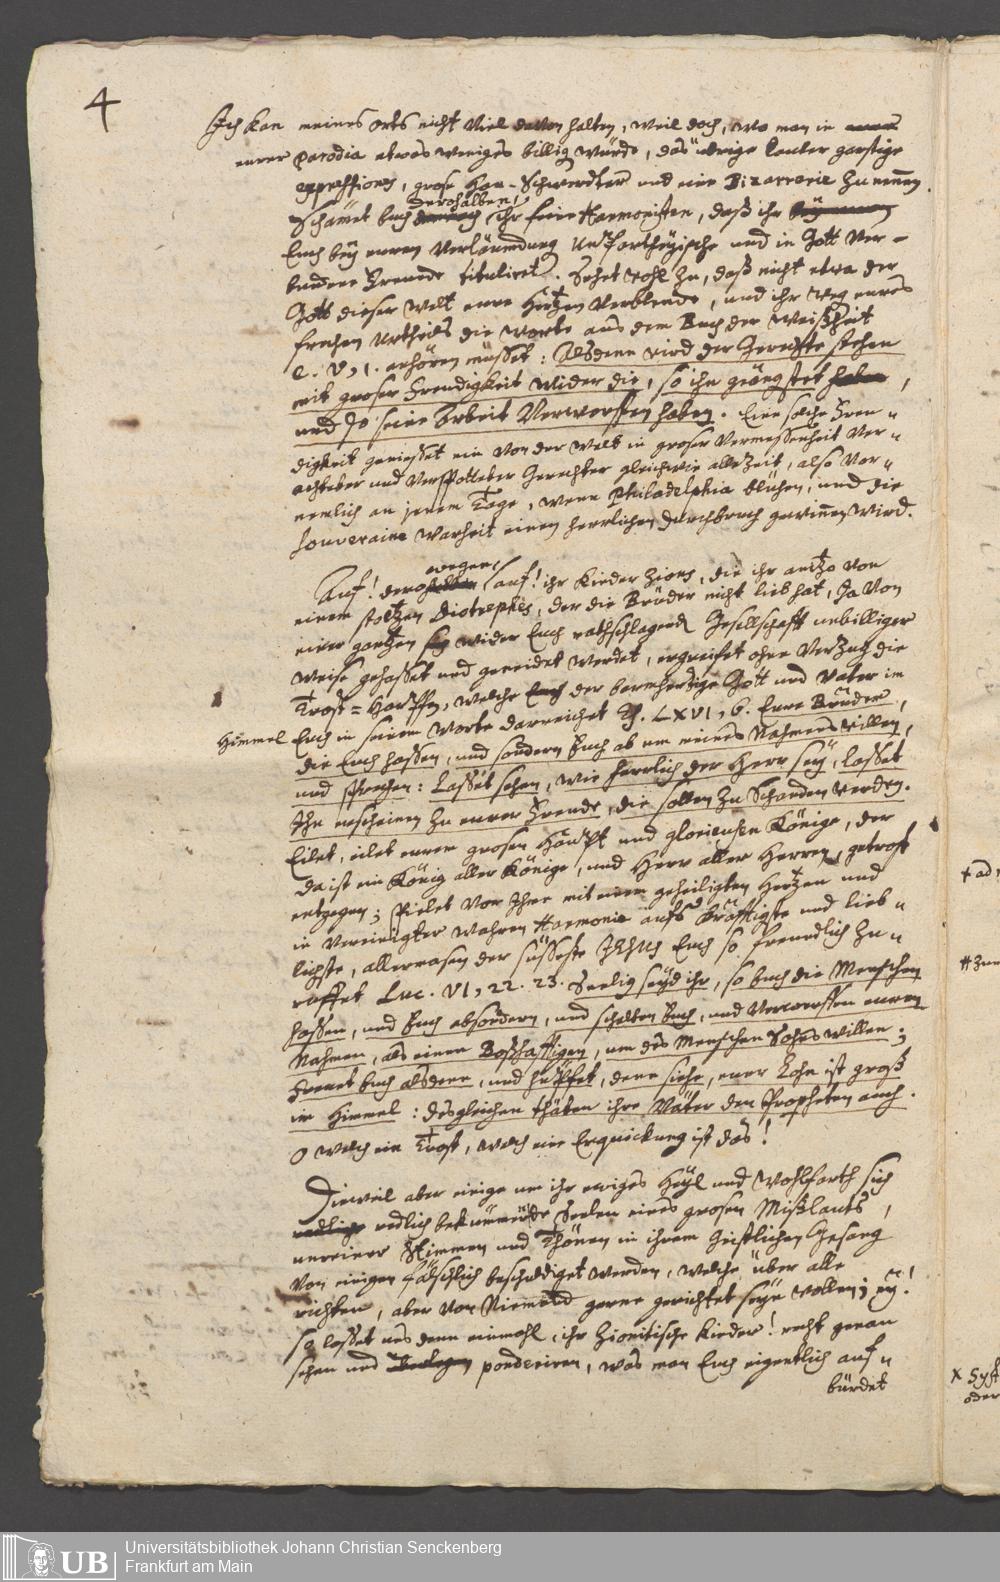 4
Ich kan meines orts nicht viel davon halten, weil doch, wo man in
eurer Parodia etwas weniges billig würde, das übrige lauter garstige
expressiones, grose Hau-Schwerdter und eine Bizarrerie zu nennen.
derohalben
Schämet Euch ihr feine Harmonisten, daß ihr
Euch bey euren Verläumdung Unpartheyische und in Gott ver-
bundene Freunde tituliret. Sehet wohl zu, daß nicht etwa der
Gott dieser Welt eure Hertzen verblende, und ihr weg. eures
frechen Urtheils die Worte aus dem Buch der Weißheit
c. V, 1. anhören müsset: Alsdenn wird der Gerechte stehen
mit groser Freudigkeit wider die, so ihn geängstet haben,
und so seine Arbeit verworffen haben. Eine solche Freu-
digkeit geniesset ein von der Welt in groser Vermessenheit ver-
achteter und verspotteter Gerechter gleichwie allezeit, also vor-
nemlich an jenem Tage, wenn Philadelphia blühen, und die
souveraine Warheit einen herrlichen Durchbruch gewinnen wird.
wegen
Auf! dero auf! ihr Kinder Zions, die ihr anitzo von
einem stoltzen Diotrephes, der die Brüder nicht lieb hat, Ja von
einer gantzen wider Euch rathschlagend Gesellschafft unbilliger
Weise gehasset und geneidet werdet, ergreifet ohne Verzug die
Trost-Harffen, welche der barmhertzige Gott und Vater im
Himmel Euch in seinem Worte darreichet Es. LXVI, 6. Eure Brüder,
die Euch hassen, und sondern Euch ab um meines Nahmens willen,
und sprechen: Lasset sehen, wie herrlich der Herr sey, lasset
Ihn erscheinen zu eurer Freude, die sollen zu Schanden werden.
Eilet, eilet eurem grosen Haupt und glorieusen Könige, der
da ist ein König aller Könige, und Herr aller Herren, getrost
entgegen; Spielet vor Ihme mit einem geheiligten Hertzen und
in vereinigter wahren Harmonie aufs kräfftigste und lieb-
lichste, allermasen der süsseste JESUS Euch so freundlich zu-
ruffet Luc. VI, 22. 23. Seelig seyd ihr, so Euch die Menschen
hassen, und Euch absondern, und schelten Euch, und verwerffen euren
Nahmen, als einen Boßhafftigen, um des Menschen Sohns willen;
Freuet Euch alsdenn, und hüpfet, denn siehe, euer Lohn ist groß
im Himmel: desgleichen thäten ihre Väter den Propheten auch.
O welch ein Trost, welch eine Erquickung ist das!
Dieweil aber einige um ihr ewiges Heyl und Wohlfarth sich
redlich bekümmerte Seelen eines grosen Mißlauts,
unreiner Stimmen und Thönen in ihrem Geistlichen Gesang
von einigen fälschlich beschuldiget werden, welche über alle
richten, aber von Niemand gerne gerichtet seyn wollen; ey!
so lasset uns denn einmahl, ihr Zionitische Kinder! recht genau
sehen und ponderiren, was man Euch eigentlich auf-
bürdet
Universitätsbibliothek Johann Christian Senckenberg
Frankfurt am Main
UB